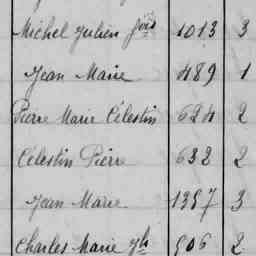 Michel Julien Jnis 1013 3
Jean Marie 489 1
Pierre Marie Célestin 624 2
Célestin Pierre 632 2
Jean Marie 1357 3
Charles Marie Jh 906 2